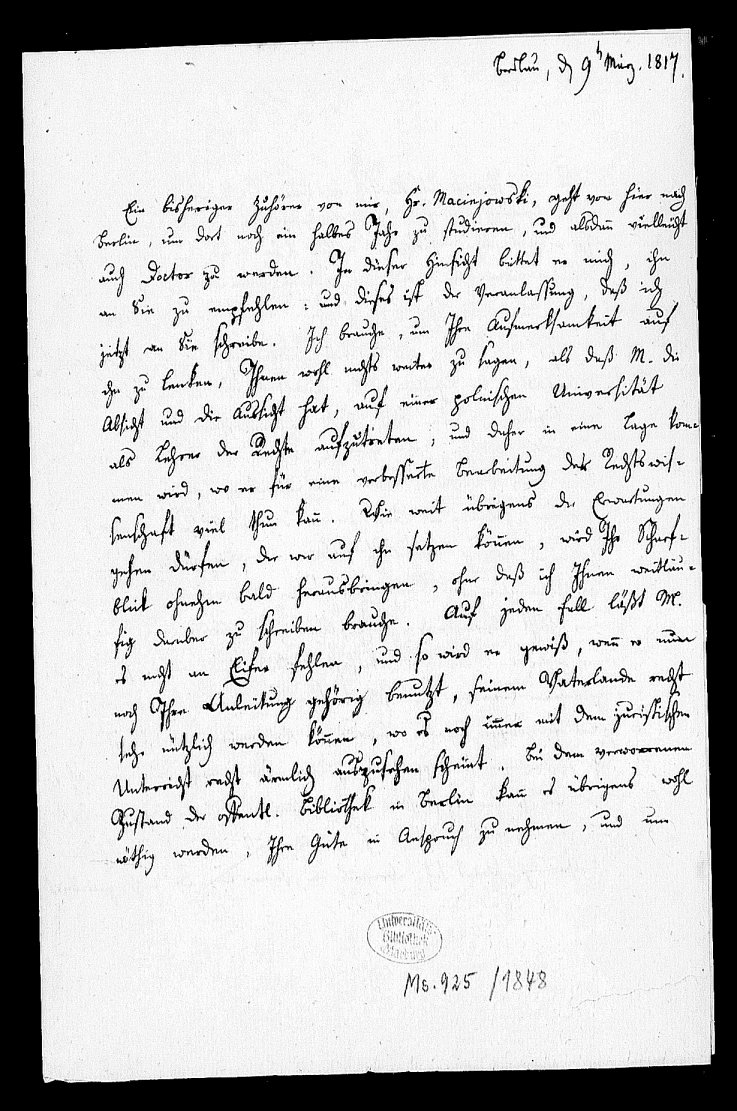 Breslau, d. 9t März. 1817.
Ein bisheriger Zuhörer von mir, Hr. Maciejowski, geht von hier nach
Berlin, um dort noch ein halbes Jahr zu studieren, und alsdann vielleicht
auch Doctor zu werden. In dieser Hinsicht bittet er mich, ihn
an Sie zu empfehlen: und dieses ist die Veranlassung, daß ich
jetzt an Sie schreibe. Ich brauche, um Ihre Aufmerksamkeit auf
ihn zu lenken, Ihnen wohl nichts weiter zu sagen, als daß M. die
Absicht und die Aussicht hat, auf einer polnischen Universität
als Lehrer der Rechte aufzutreten, und daher in eine Lage kom-
men wird, wo er für eine verbesserte Bearbeitung der Rechtswis-
senschaft viel thun kann. Wie weit übrigens die Erwartungen
gehen dürfen, die wir auf ihn setzen können, wird Ihr Scharf-
blick ohnehin bald herausbringen, ohne daß ich Ihnen weitläu-
fig darüber zu schreiben brauche. Auf jeden Fall läßt M.
es nicht an Eifer fehlen, und so wird er gewiß, wenn er nun
noch Ihre Anleitung gehörig benutzt, seinem Vaterlande recht
sehr nützlich werden können, wo es noch immer mit dem juristischen
Unterricht recht ärmlich auszusehen scheint. Bei dem verworrenen
Zustand der öffentl. Bibliothek in Berlin kann es übrigens wohl
nöthig werden, Ihre Güte in Anspruch zu nehmen, und um
Universitäts
Bibliothek
Marburg
Ms. 925 /1848